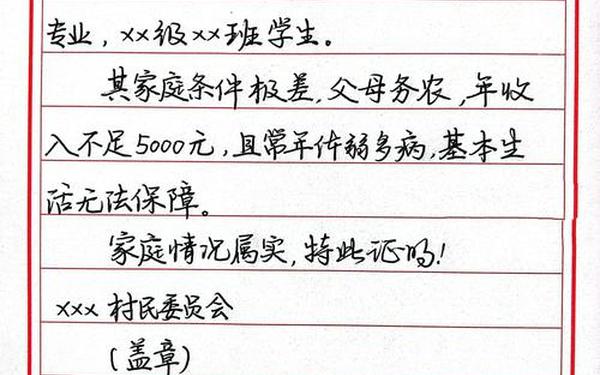 专业，xx级xx班学生。
其家庭条件极差，父母务农，年收
入不足5000元，且常年体弱多病，基本生
活无法保障。
家庭情况属实，特此证明！
xxx村民委员会
（盖章）